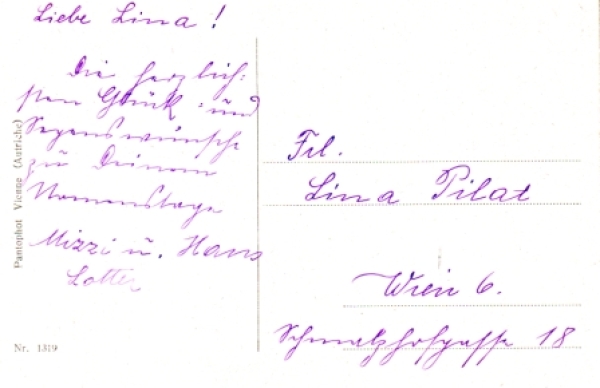 Liebe Lina!
Die herzlich-
sten Glück- und
Segenswünsche
zu Deinem
Namenstage
Mizzi u. Hans
Lotter
Pantophot Vienne (Autriche)
Nr. 1319
Frl.
Lina Pilat
Wien 6.
Schmalzhofgasse 18